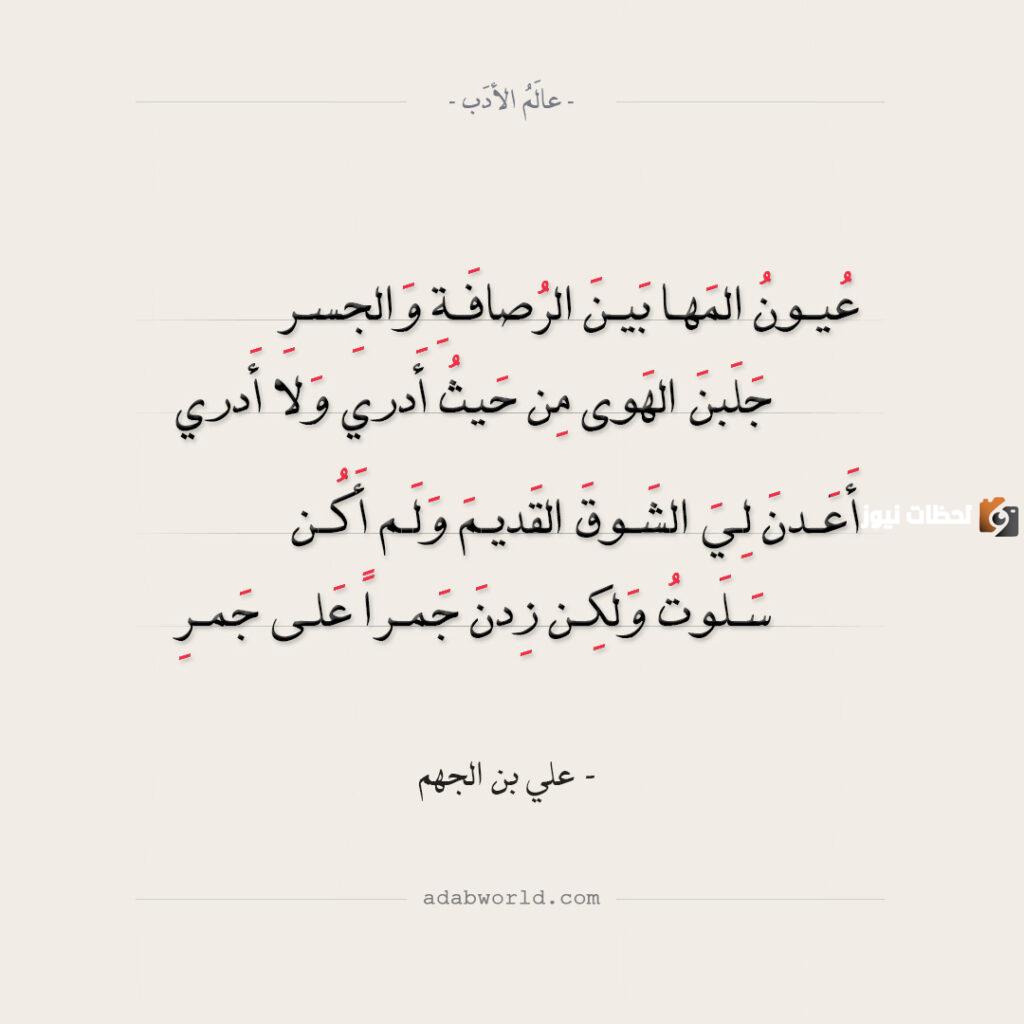 - عالَمُ الأدَب -
عُيـونُ المَهـا بَيـنَ الرُصافَـةِ وَالجِسـرِ
جَلَبنَ الهَوى مِن حَيثُ أَدري وَلا أَدري
أَعَـدنَ لِـيَ الشَـوقَ القَديـمَ وَلَـم أَكُـن
سَـلَوتُ وَلكِـن زِدنَ جَمـراً عَلـى جَمـرِ
لحظات نيوز
- علي بن الجهم
adabworld.com